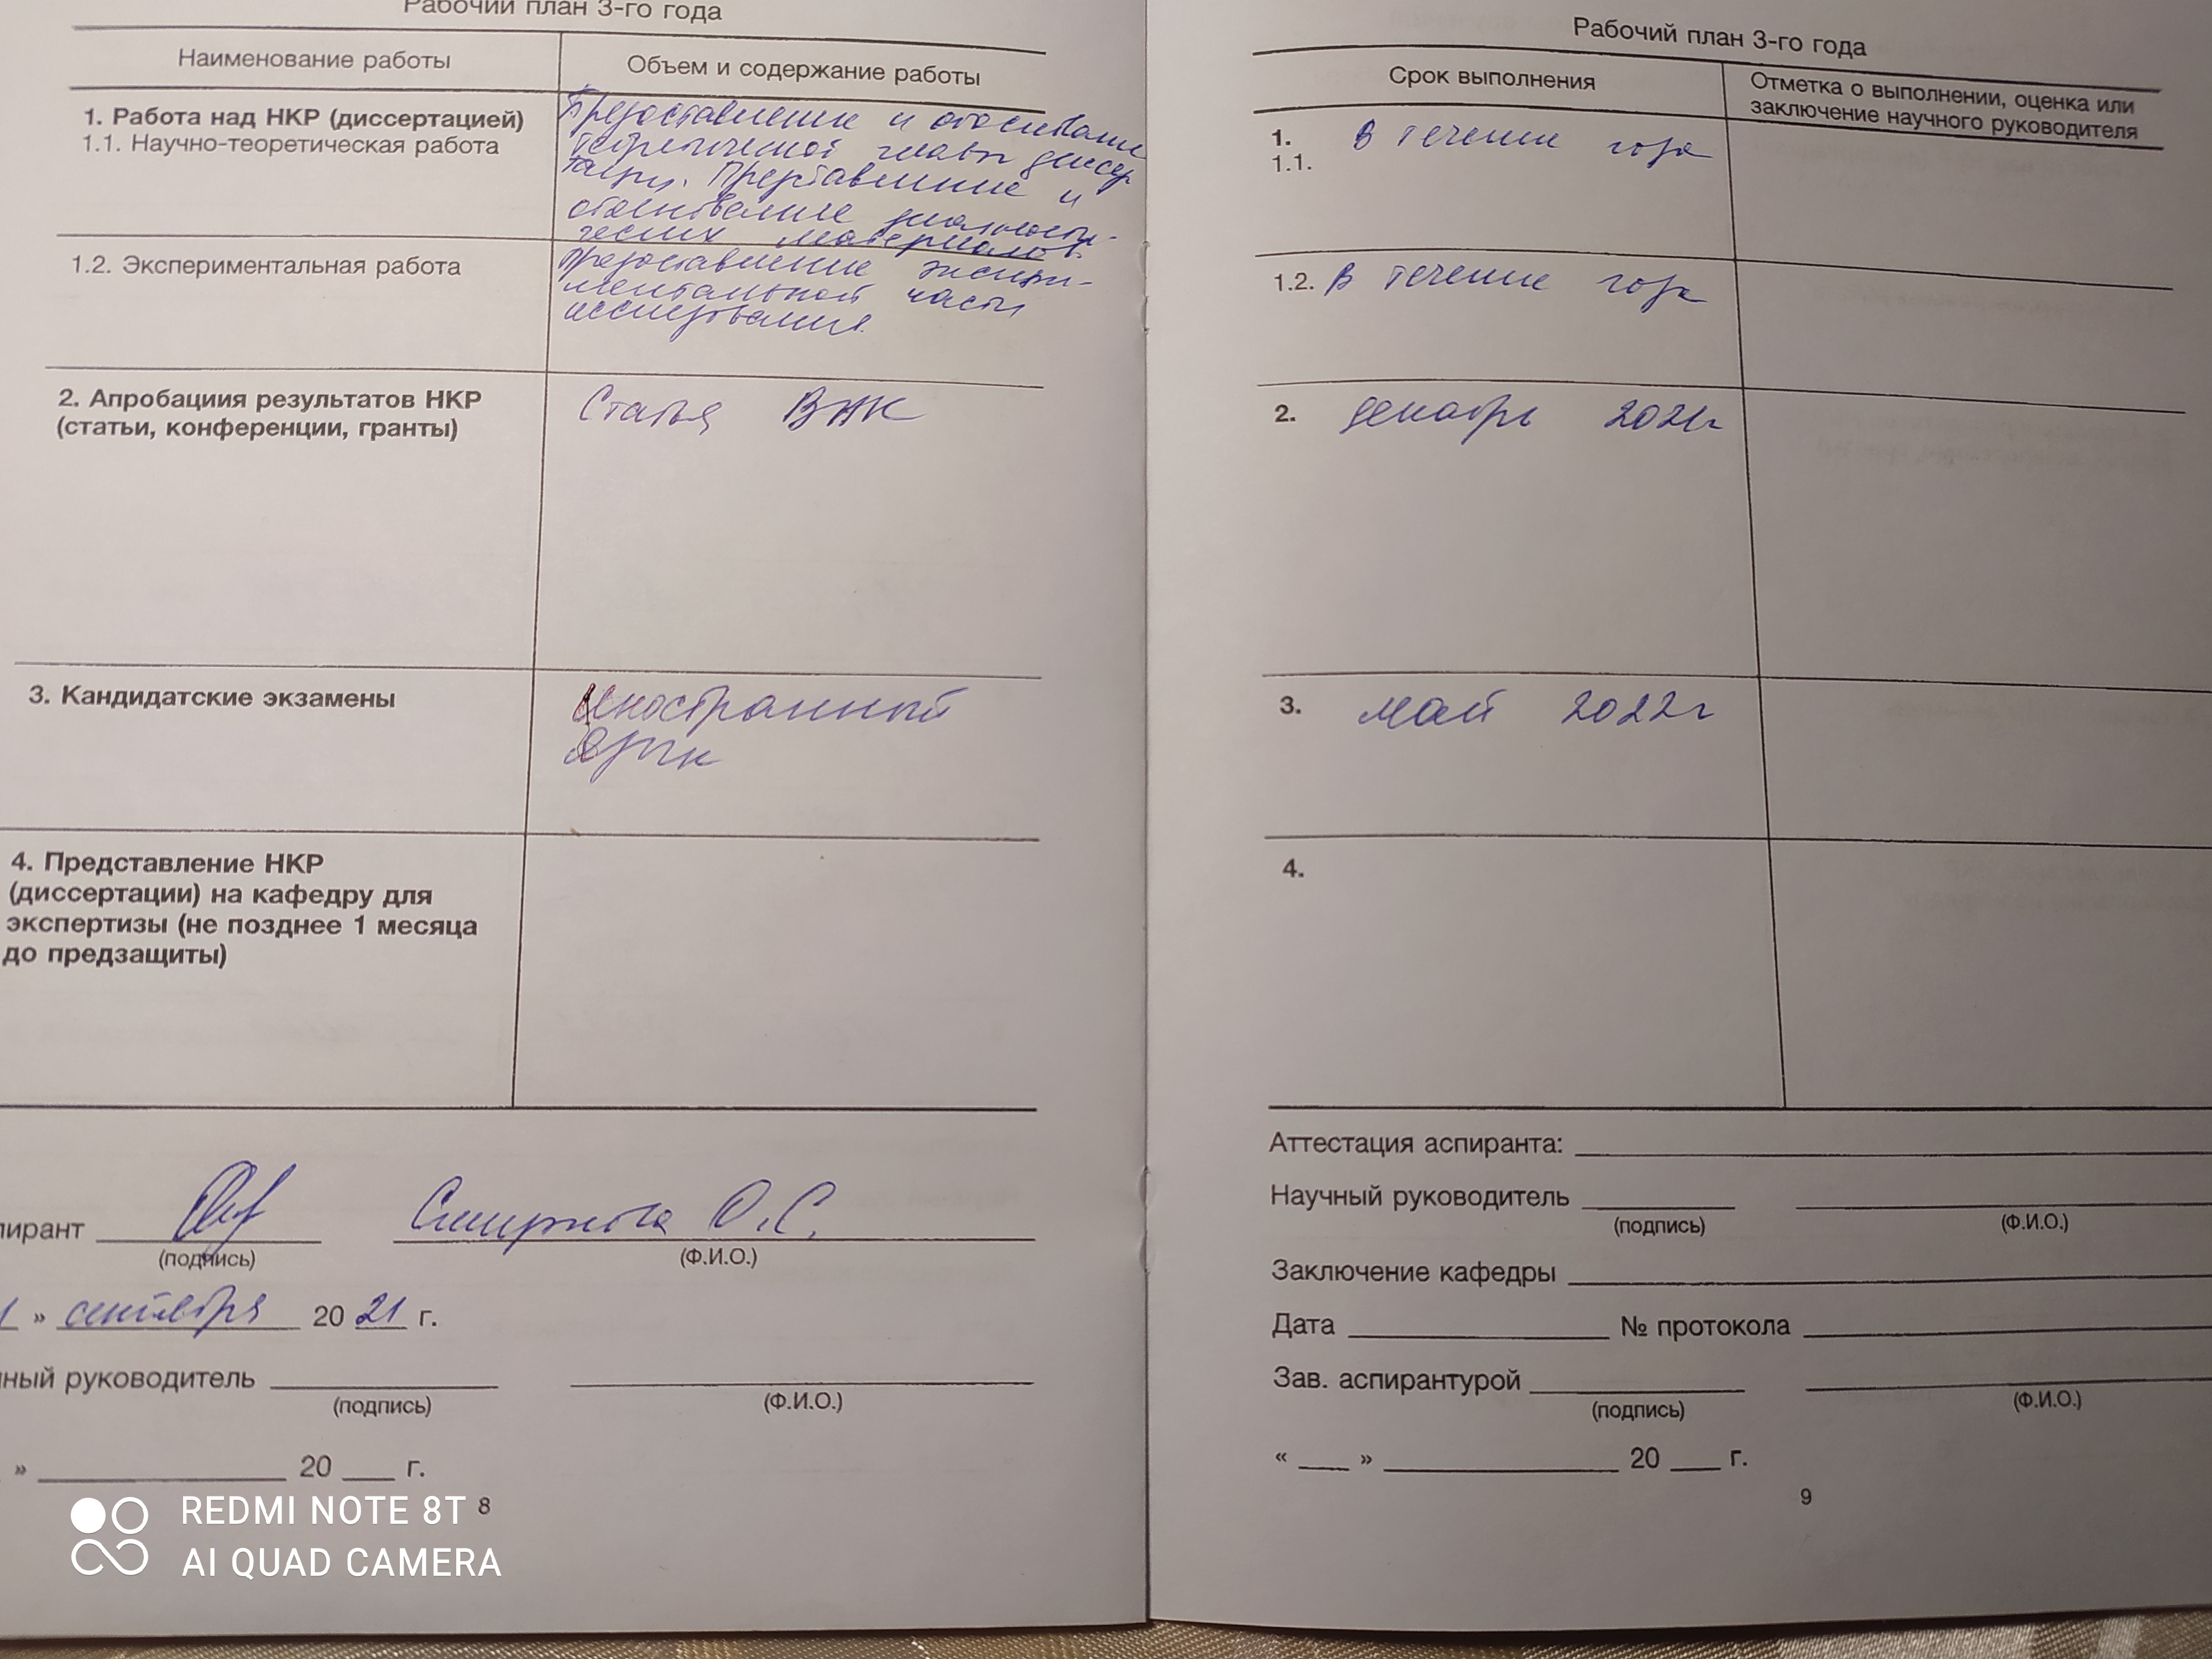 Рабочий план 3-го года
Наименование работы
Объем и содержание работы
1. Работа над НКР (диссертацией)
1.1. Научно-теоретическая работа
Предоставление и обоснование
теоретической главы диссер
тации. Представление и
обоснование диагности-
ческих материалов
1.2. Экспериментальная работа
предоставление экспери-
ментальной части
исследования
2. Апробациия результатов НКР
(статьи, конференции, гранты)
Статья ВАК
3. Кандидатские экзамены
Иностранный
язык
4. Представление НКР
(диссертации) на кафедру для
экспертизы (не позднее 1 месяца
до предзащиты)
пирант Смирнова О.С.
(подпись) (Ф.И.О.)
» сентября 20 21 г.
ный руководитель
(подпись) (Ф.И.О.)
» 20 г.
8
REDMI NOTE 8T
AI QUAD CAMERA
Рабочий план 3-го года
Срок выполнения
Отметка о выполнении, оценка или
заключение научного руководителя
1. в течение года
1.1.
1.2. в течение года
2. декабрь 2021г
3. май 2022г
4.
Аттестация аспиранта:
Научный руководитель
(подпись) (Ф.И.О.)
Заключение кафедры
Дата № протокола
Зав. аспирантурой
(подпись) (Ф.И.О.)
« » 20 г.
9